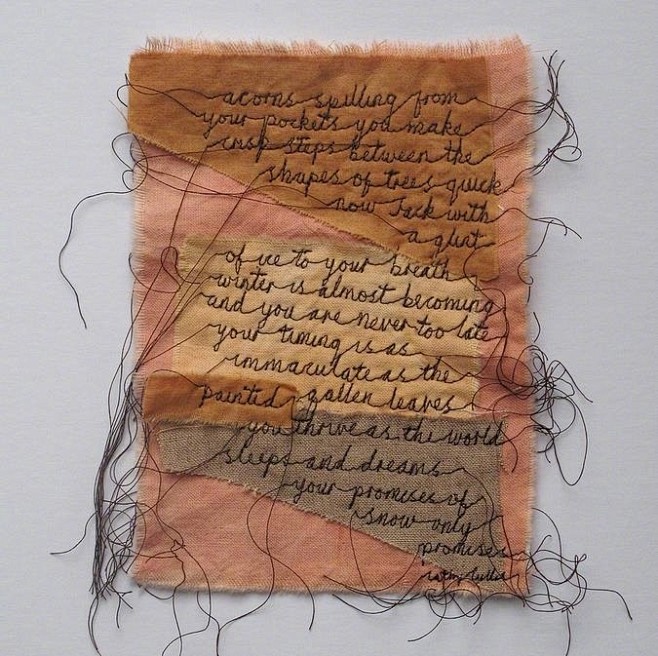 acorns spilling from
your pockets you make
crisp steps between the
shapes of trees quick
now Jack with
a glint
of ice to your breath
winter is almost becoming
and you are never too late
your timing is as
immaculate as the
painted gallen leaves
you thrive as the world
sleeps and dreams
your promises of
snow only
promises